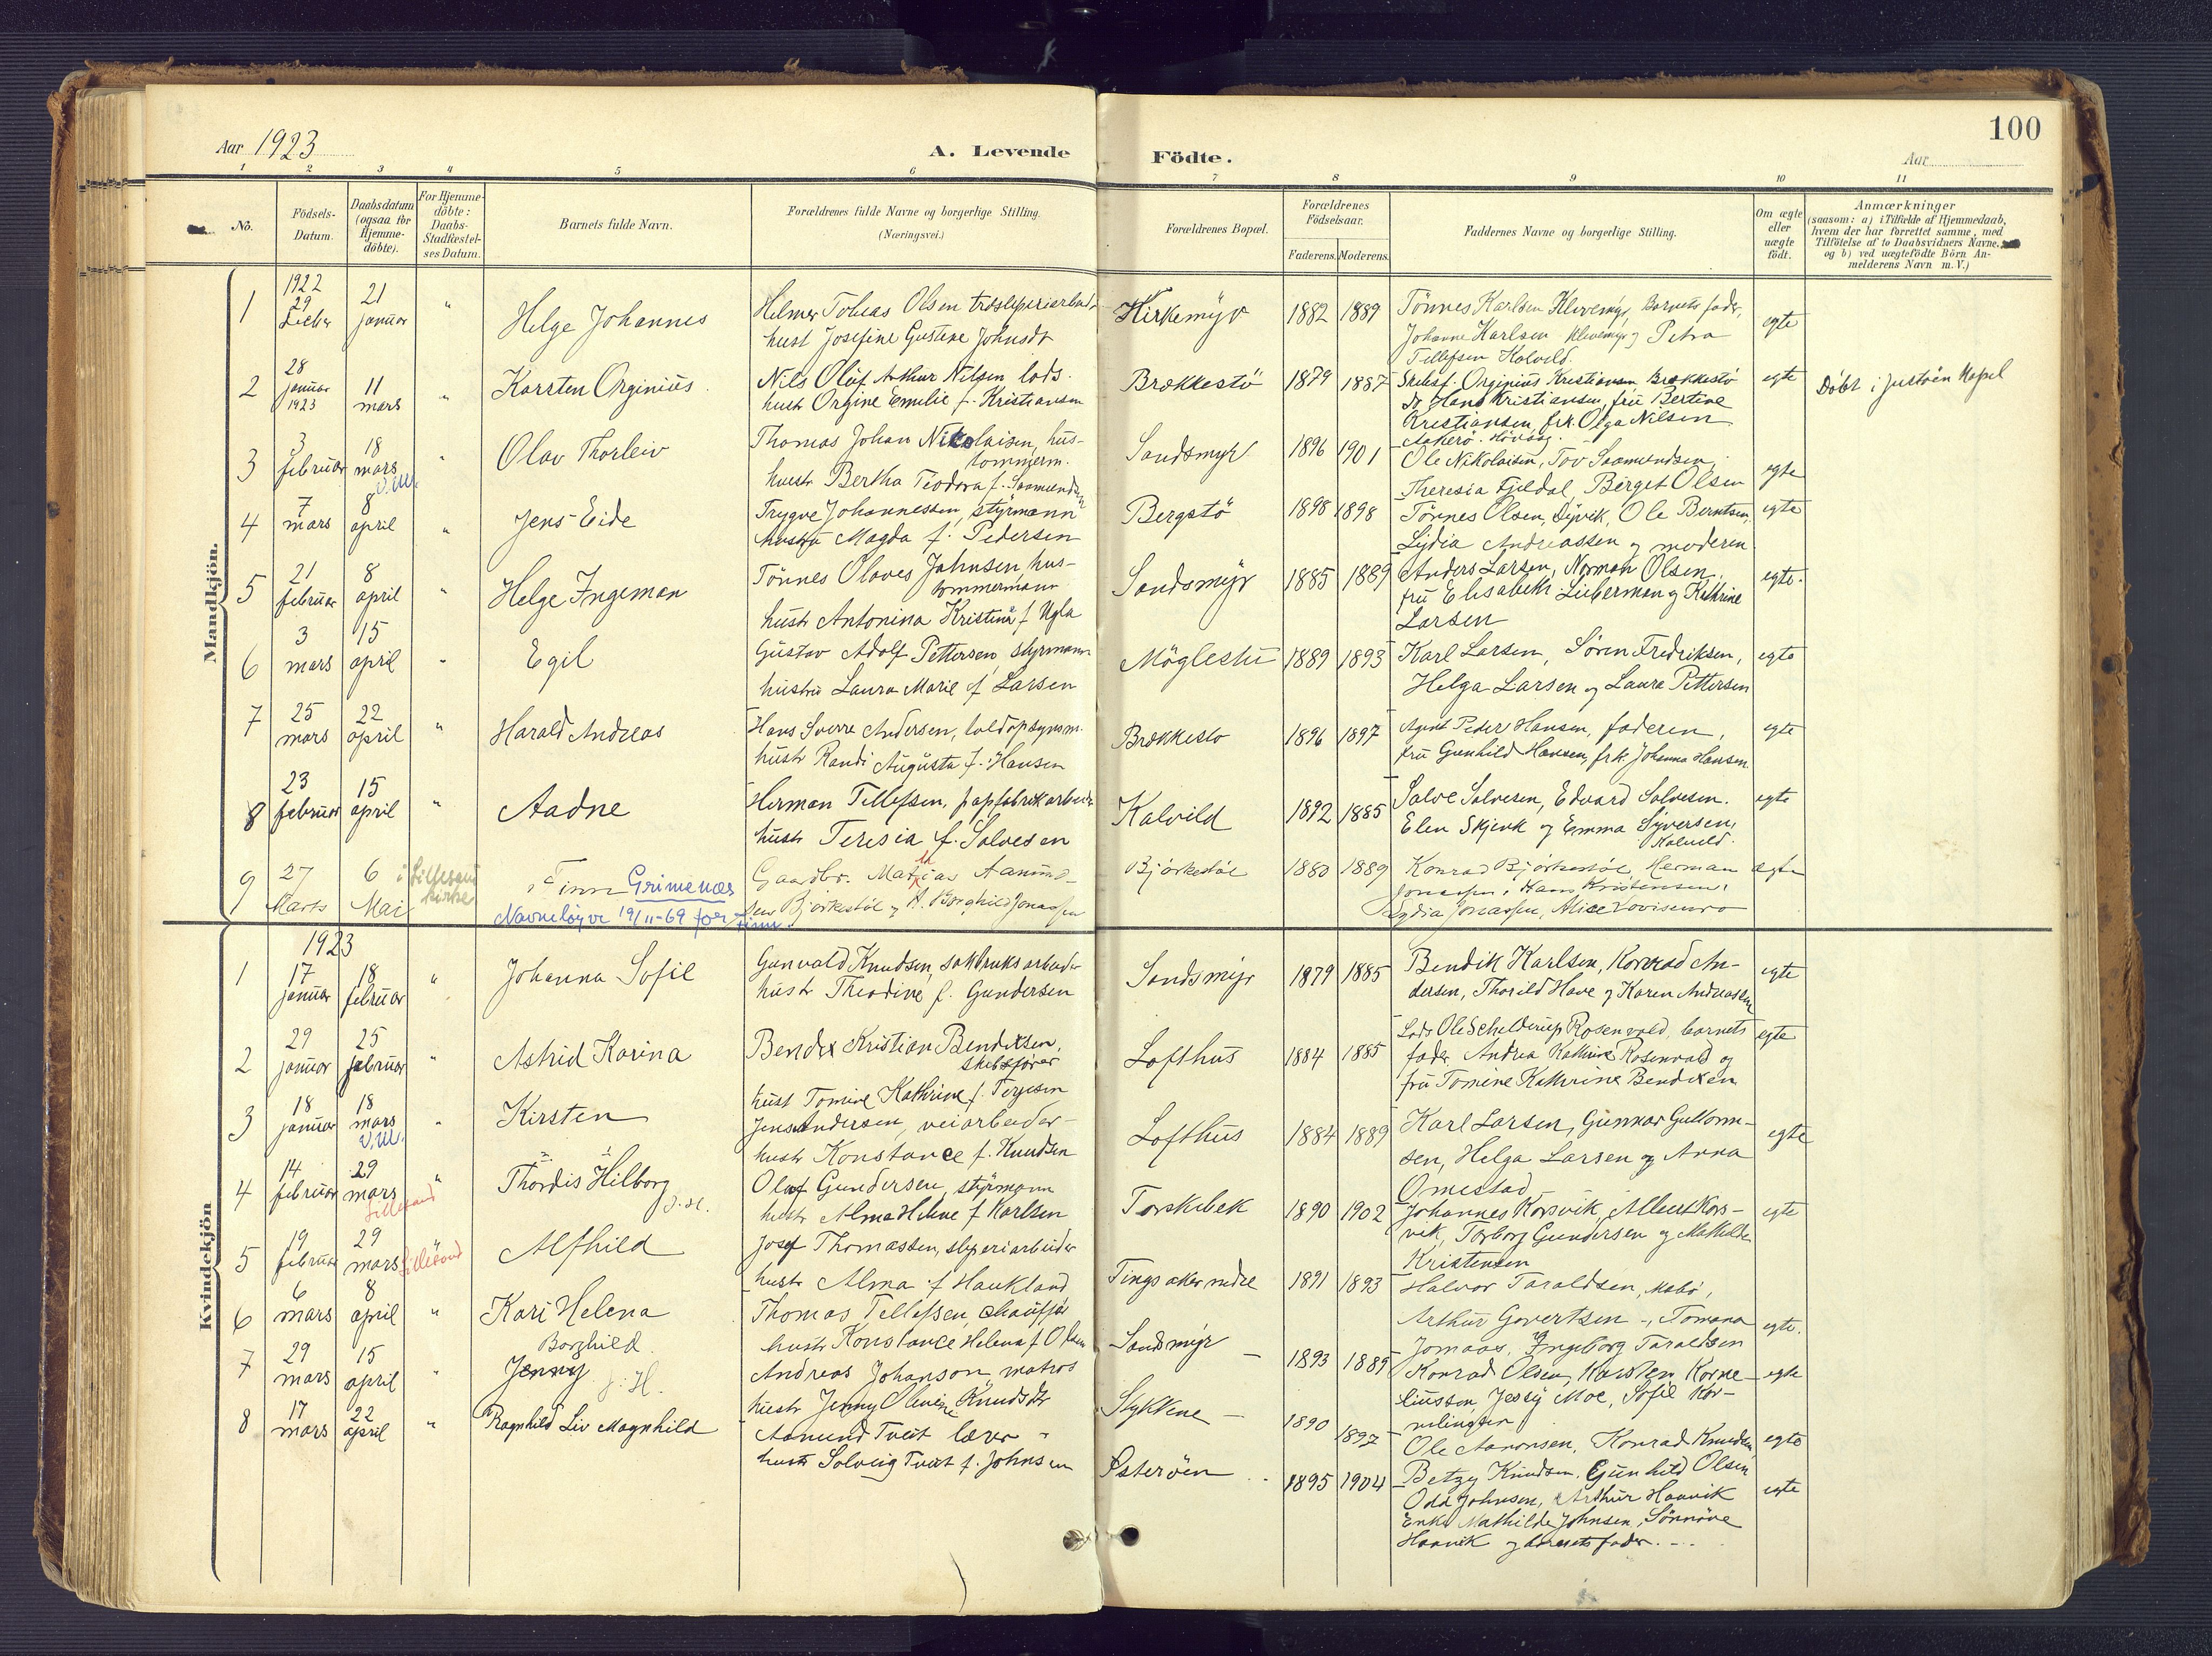 100
Aar 1923
A. Levende Födte.
Aar
1 2 3 4 5 6 7 8 9 10 11
No.
Födsels-Datum.
Daabsdatum (ogsaa for Hjemme-döbte).
For Hjemme-döbte: Daabs-Stadfæstel-ses Datum.
Barnets fulde Navn.
Forældrenes fulde Navne og borgerlige Stilling.
(Næringsvei.)
Forældrenes Bopæl.
Forældrenes Födselsaar.
Faderens. Moderens.
Faddernes Navne og borgerlige Stilling.
Om ægte eller uægte födt.
Anmærkninger
(saasom: a) i Tilfælde af Hjemmedaab,
hvem der har forrettet samme, med
Tilföielse af to Daabsvidners Navne,
og b) ved uægtefödte Börn An-
melderens Navn m. V.)
Mandkjön.
1 1922 29 21 januar " Helge Johannes
Helmer Tobias Olsen træsliperiarbeid
hust Josefine Gustine Johnsdt
1882 1889 Tönnes Karlsen Klevemyr, Barnets fader,
Johanne Karlsen Klevemyr og Petra
Tellefsen Kalvild.
egte
2 28 januar 1923 11 mars " Karsten Orginius
Nils Oluf Arthur Nilsen lods.
hustr Orgine Emilie f. Kristiansen
Brækkestö 1879 1887 Skibsf. Orginius Kristiansen Brækkestö
Do Hans Kristiansen, fru Bertine
Kristiansen, frk. Olga Nilsen
Aakerö. Hövaag.
egte Döbt i Justöen Kapel
3 3 februar 18 mars " Olav Thorleiv
Thomas Johan Nikolaisen, hus-
tommerm.
hustr Bertha Teodora f. Saamundsen
Sandsmyr 1896 1901 Ole Nikolaisen, Tov Saamundsen,
Theresia Fjeldal, Birget Olsen
egte
4 7 mars 8 april " Jens Eide
Trygve Johannessen, styrmann
hustru Magda f. Pedersen
Bergstö 1898 1898 Tönnes Olsen, Dyvik, Ole Berntsen,
Lydia Andreassen og moderen
egte
5 21 februar 8 april " Helge Ingeman
Tönnes Olaves Johnsen hus-
tommermann
hustr Antonina Kristine f Ugla
Sandsmyr 1885 1889 Anders Larsen, Norman Olsen,
fru Elisabeth Lieberman og Kathrine
Larsen
egte.
6 3 mars 15 april " Egil
Gustav Adolf Pettersen, styrmann
hustru Laura Marie f Larsen
Möglestu 1889 1893 Karl Larsen, Sören Fredriksen,
Helga Larsen og Laura Pettersen
egte
7 25 mars 22 april " Harald Andreas
Hans Sverre Andersen, toldopsynsm.
hustr Randi Augusta f. Hansen
Brækkestö 1896 1897 Agent Peder Hansen, faderen,
fru Gunhild Hansen, frk. Johanna Hansen
egte
8 23 februar 15 april " Aadne
Herman Tellefsen, papfabrikarbeid
hustr Teresia f. Salvesen
Kalvild 1892 1885 Salve Salvesen, Edvard Salvesen.
Elen Skjevk og Emma Syversen,
Kalvild.
egte
9 27 Marts 6 Mai i Lillesand kirke Finn Grimenæs
Navneløyve 19/11-69 for Finn
Gaardbr. Mathias Aanund-
sen Bjorkestöl og H. Borghild Jonassen
Bjorkestöl 1880 1889 Konrad Bjorkestöl, Herman
Jonassen, Hans Kristensen,
Lydia Jonassen, Alice
ægte
Kvindekjön
1923
1 17 januar 18 februar " Johanna Sofie
Gunvald Knudsen, sakbruksarbeider
hustr Theodine f. Gundersen
Sandsmyr 1879 1885 Bendik Karlsen, Konrad An-
dersen, Thorild Have og Karen Andreassen
egte
2 29 januar 25 februar " Astrid Karina
Bendix Kristian Bendixsen,
skibsförer
hust Tomine Kathrine f. Terjesen
Lofthus 1884 1885 Lods Ole Schelderup Rosenvold, barnets
fader, Andrea Kathrine Rosenvold og
fru Tomine Kathrine Bendixen
egte
3 18 januar 18 mars " Kirsten
Jens Andersen, veiarbeider
hustr Konstance f. Knudsen
Lofthus 1884 1889 Karl Larsen, Gunnar Guttorm-
sen, Helga Larsen og Anna
Omestad
egte
4 14 februar 29 mars Lillesand " Thordis Hilborg J.H.
Olaf Gundersen styrmann
hustr Alma Helene f Karlsen
Torskebek 1890 1902 Johannes Korsvik, Albert Kors-
vik, Torborg Gundersen og Mathilde
Kristensen
egte
5 19 februar 29 mars Lillesand " Alfhild
Josef Thomassen, sliperiarbeider
hustr Alma f Haukland
Tingsaker nedre 1891 1893 Halvor Taraldsen, Mebö,
Arthur Govertsen -, Tomana
Jomaas, Ingeborg Taraldsen
egte.
6 6 mars 8 april " Kari Helena
Thomas Tellefsen, chaufför
hustr Konstance Helena f Olsen
Sandsmyr 1893 1885 Konrad Olsen, Karsten Korne-
liussen, Jessy Moe, Sofie Kor-
neliussen
egte
7 29 mars 15 april " Borghild Jenny J.H.
Andreas Johanson, matros
hustr Jenny Olevine Knudsdtr
Stykkene 1890 1897 Ole Aaronsen, Konrad Knudsen,
Betzy Knudsen, Gunhild Olsen
egte
8 17 mars 22 april " Ragnhild Liv Magnhild
Aamund Tveit lærer
hustr Solveig Tveit f. Johnsen
Österöen 1895 1904 Odd Johnsen, Arthur Haavik
Enke Mathilde Johnsen, Sönnöve
Haavik og barnets fader.
egte